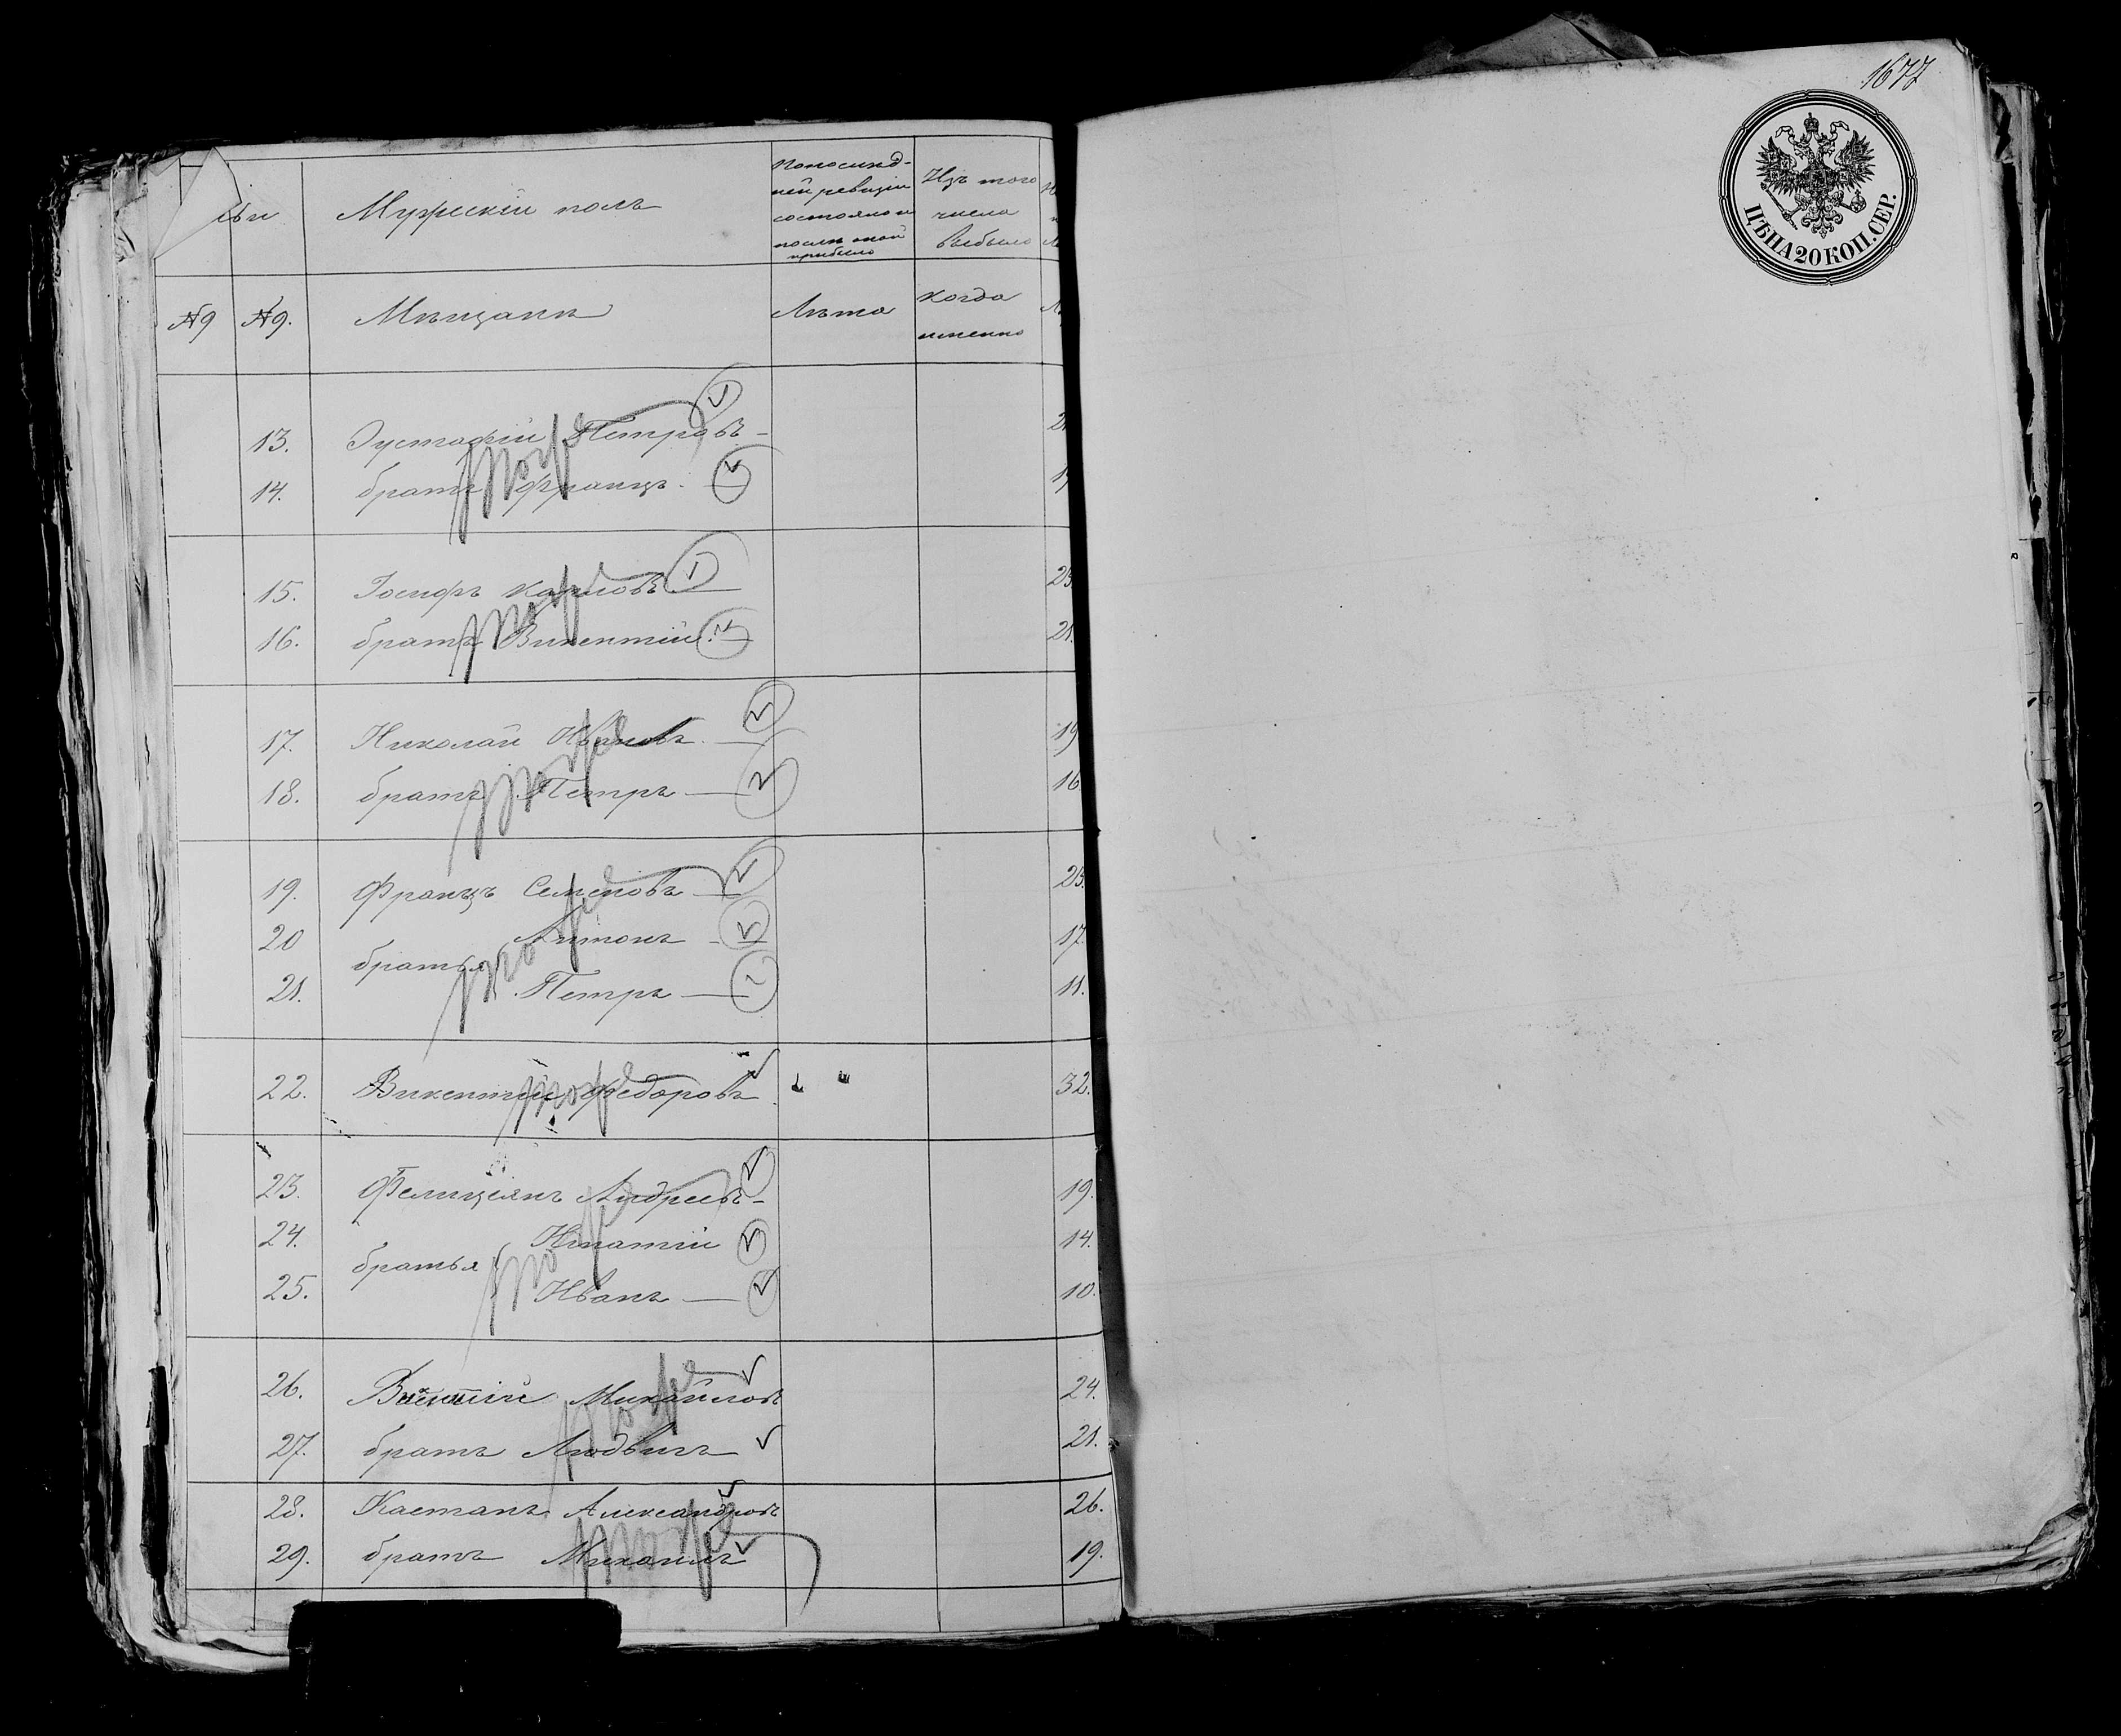 1677
ЦѢНА 20 КОП. СЕР.
Мужескій полъ
По послѣд-
ней ревизіи
состояло и
послѣ оной
прибыло
Изъ того
числа
выбыло
№9 №9. Мѣщане Лѣта когда
именно
13. Эустафій Петровъ 21
14. братъ Францъ
15. Іосифъ Карловъ 23
16. братъ Викентій 21.
тоже
17. Николай Ивановъ 19
18. братъ Петръ 16.
тоже
19. Францъ Семеновъ 23.
20 Антонъ 17.
братья
21. Петръ 11.
22. Викентій Федоровъ 32.
тоже
23. Фелиціянъ Андреевъ 19.
24. Игнатій 14.
братья
25. Иванъ 10.
26. Михайловъ 24.
27. братъ Людвигъ 21.
28. Каетанъ Александровъ 26.
29. братъ Михаилъ 19.
тоже